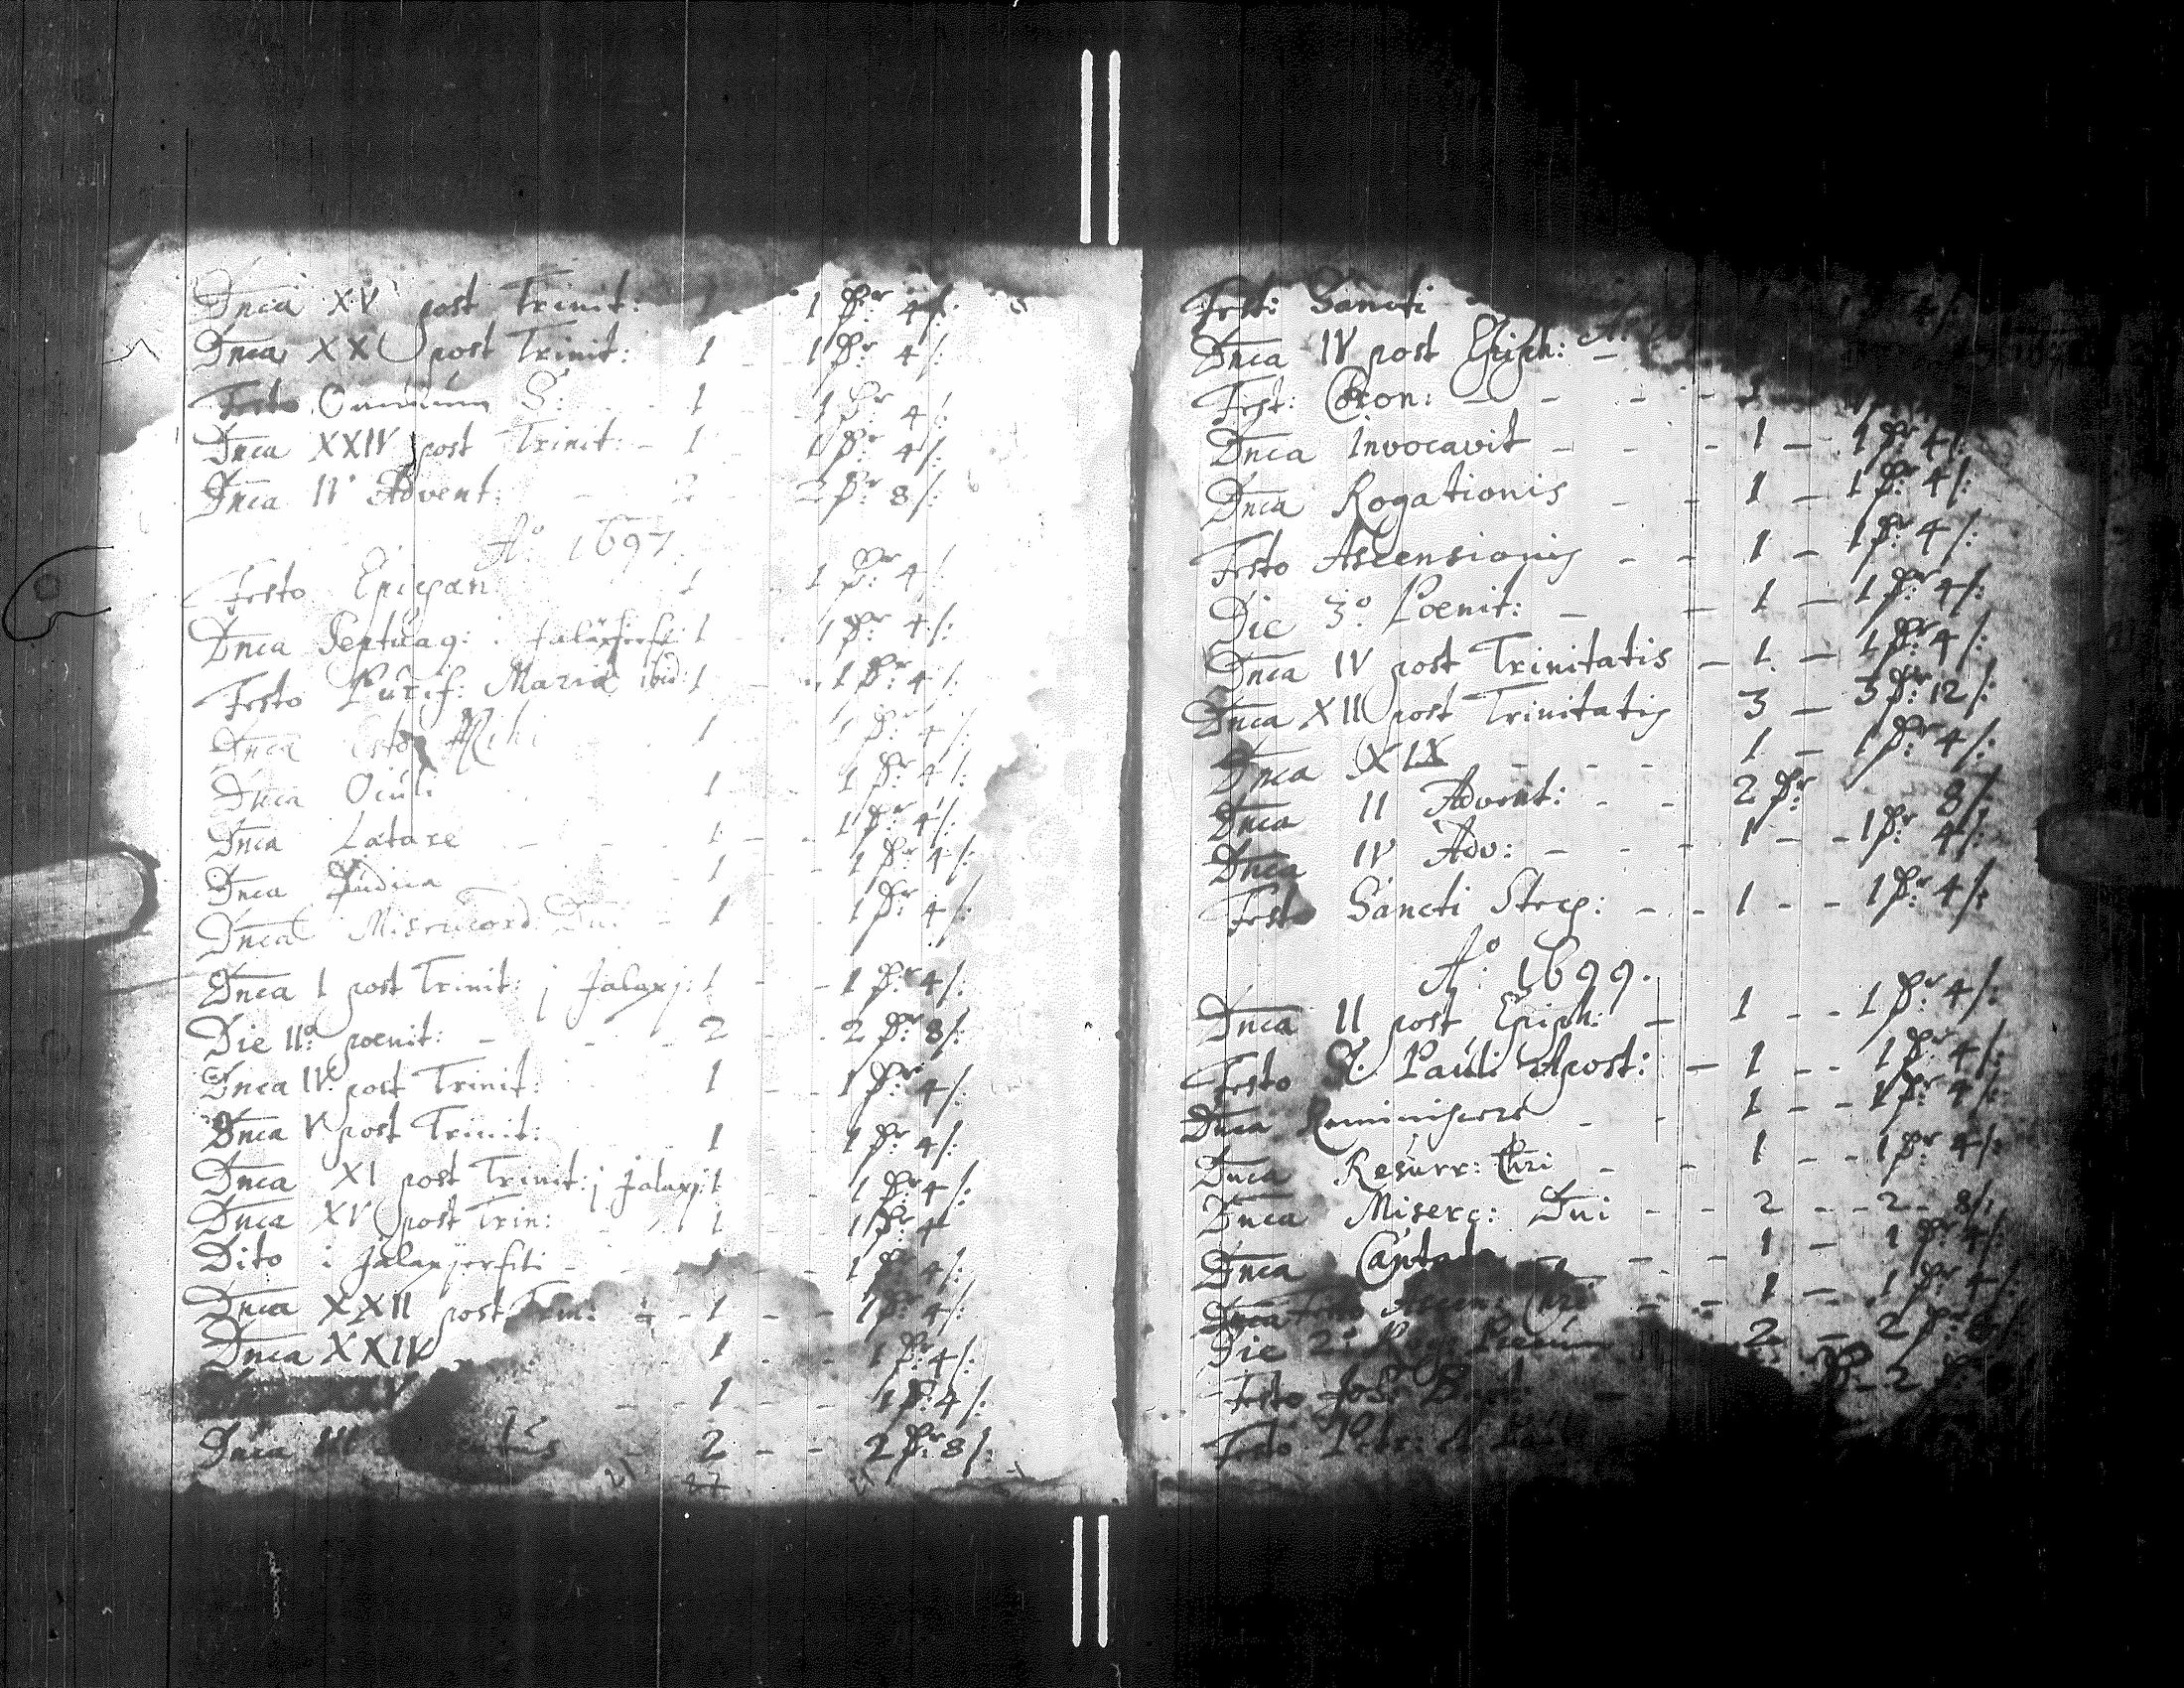 Dnca XV post Trinit: 1 - 1 Pr: 4 /:
Dnca XXI post Trinit: 1 - 1 Pr: 4 /:
Festo Omnium S: 1 - 1 Pr: 4 /:
Dnca XXIV post Trinit: - 1 - 1 Pr: 4 /:
Dnca II Advent: - 2 - 2 Pr: 8 /:
Ao: 1697.
Festo Epiepan: 1 - 1 Pr: 4 /:
Dnca Septuag: i 1 - 1 Pr: 4 /:
Festo Purif: Mariæ ibid: 1 - 1 Pr: 4 /:
Dnca Esto Mihi 1 - 1 Pr: 4 /:
Dnca Oculi 1 - 1 Pr: 4 /:
Dnca Lætare - - 1 - - 1 Pr: 4 /:
Dnca Judica 1 - 1 Pr: 4 /:
Dnca Misericord: Dni 1 - 1 Pr: 4 /:
Dnca I post Trinit: j Jalaxj: 1 - - 1 Pr: 4 /:
Die IIo: poenit: - - 2 - - 2 Pr: 8 /:
Dnca IV post Trinit: 1 - - 1 Pr: 4 /:
Dnca V post Trinit: 1 - 1 Pr: 4 /:
Dnca XI post Trinit: j Jalaxj: 1 - 1 Pr: 4 /:
Dnca XV post Trin: 1 - 1 Pr: 4
Dito i Jalaxjerfiti - - 1 Pr: 4 /:
Dnca XXII post Trin: - 1 - - 1 Pr: 4 /:
Dnca XXIV 1 - - 1 Pr: 4 /:
- - 1 - - 1 P: 4 /:
Dnca III - 2 - - 2 Pr: 8 /:
21 27
Fest: Sancti 4 /:
Dnca IV post Epiph: -
Fest: Coron: - - - -
Dnca Invocavit - - - 1 - 1 Pr: 4 /:
Dnca Rogationis - - 1 - 1 Pr: 4 /:
Festo Ascensionis - - 1 - 1 Pr: 4 /:
Die 3o: Poenit: - - 1 - 1 Pr: 4 /:
Dnca IV post Trinitatis - 1. - 1 Pr: 4 /:
Dnca XII post Trinitatis 3 - 3 Pr: 12 /:
Dnca XIX - - - 1 - 1 Pr: 4 /:
Dnca II Advent: - - 2 Pr: 8 /:
Dnca IV Adv: - - - 1 - - 1 Pr: 4 /:
Festo Sancti Step: - - 1 - - 1 Pr: 4 /:
Ao: 1699.
Dnca II post Epiph: - 1 - - 1 Pr: 4 /:
Festo S. Pauli Apost: - 1 - - 1 Pr: 4 /:
Dnca Reminiscere - - 1 - - 1 Pr: 4 /:
Dnca Resurr: Chri - - 1 - - 1 Pr: 4 /:
Dnca Miserc: Dni - - 2 - - 2 - 8 /:
Dnca Cantate - - - 1 - 1 Pr: 4 /:
Dnca Chri - - 1 - 1 Pr: 4 /:
Die 2o: - 2 - 2 Pr: 8 /:
Festo - 2
Festo Petr: &